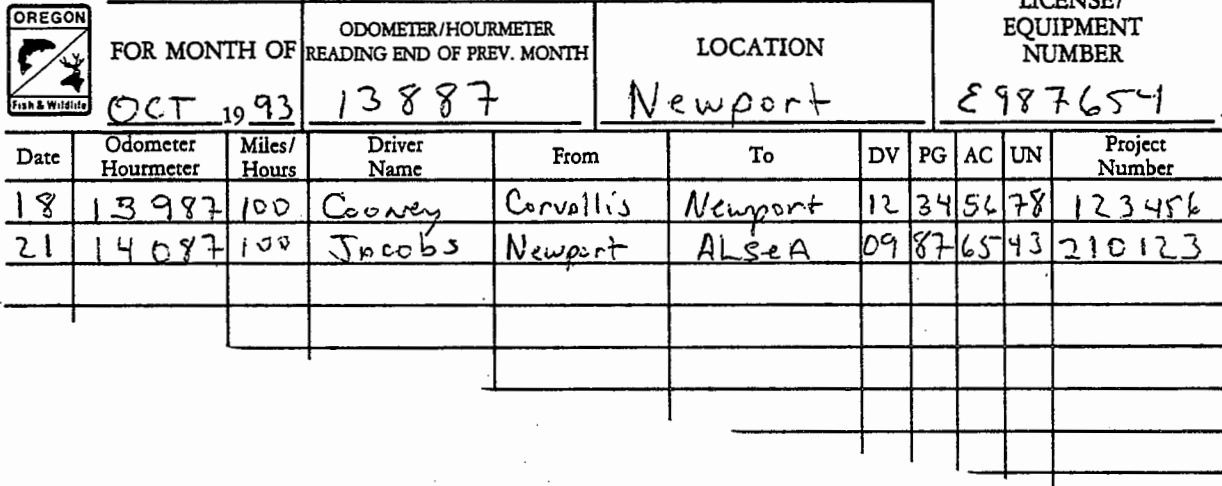 OREGON
Fish & Wildlife
FOR MONTH OF
OCT 1993
ODOMETER/HOURMETER
READING END OF PREV. MONTH
13887
LOCATION
Newport
LICENSE/
EQUIPMENT
NUMBER
E987654
Date Odometer Hourmeter Miles/ Hours Driver Name From To DV PG AC UN Project Number
18 13987 100 Cooney Corvallis Newport 12 34 56 78 123456
21 14087 100 Jacobs Newport ALSeA 09 87 65 43 210123